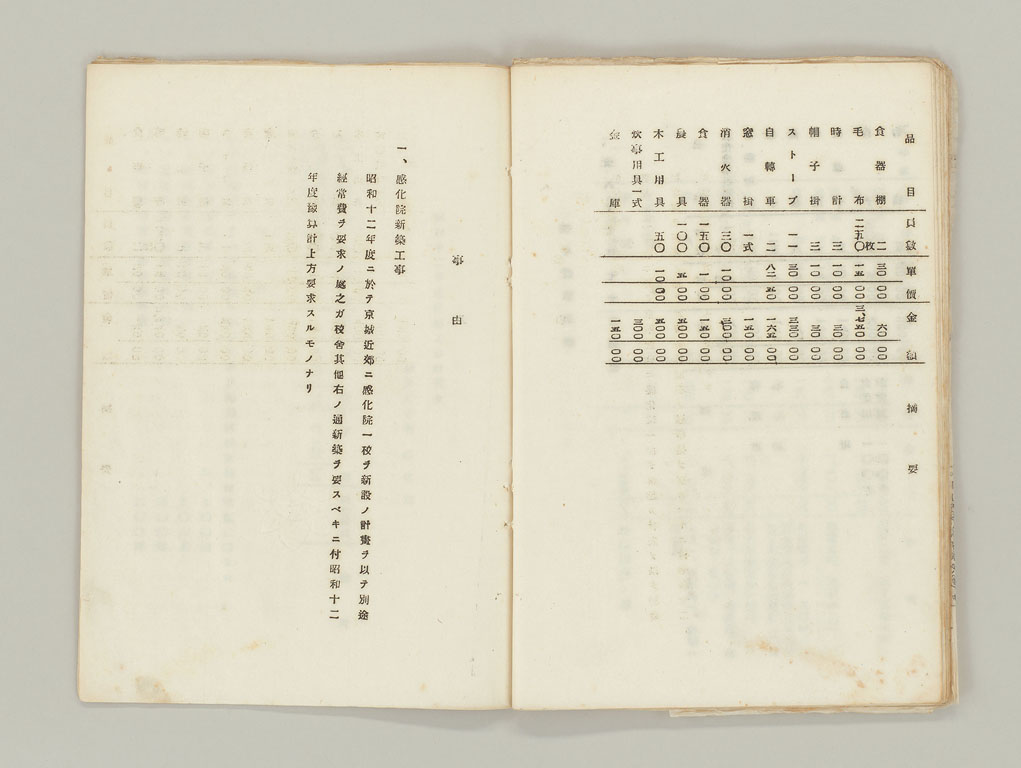 品目 員數 單價 金額 摘要
食器棚 二 三〇 〇〇 六〇 〇〇
毛布 二五〇枚 一五 〇〇 三、七五〇 〇〇
時計 三 一〇 〇〇 三〇 〇〇
帽子掛 三 一〇 〇〇 三〇 〇〇
ストーブ 一一 三〇 〇〇 三三〇 〇〇
自轉車 二 八二 五〇 一六五 〇〇
窓掛 一式 一五〇 〇〇
消火器 三〇 一〇 〇〇 三〇〇 〇〇
食器 一五〇 一 〇〇 一五〇 〇〇
農具 一〇〇 五 〇〇 五〇〇 〇〇
木工用具 五〇 一〇 〇〇 五〇〇 〇〇
炊事用具一式 三〇〇 〇〇
金庫 一五〇 〇〇
事由
一、感化院新築工事
昭和十二年度ニ於テ京城近郊ニ感化院一校ヲ新設ノ計畫ヲ以テ別途
經常費ヲ要求ノ處之ガ校舍其他右ノ通新築ヲ要スベキニ付昭和十二
年度豫算計上方要求スルモノナリ